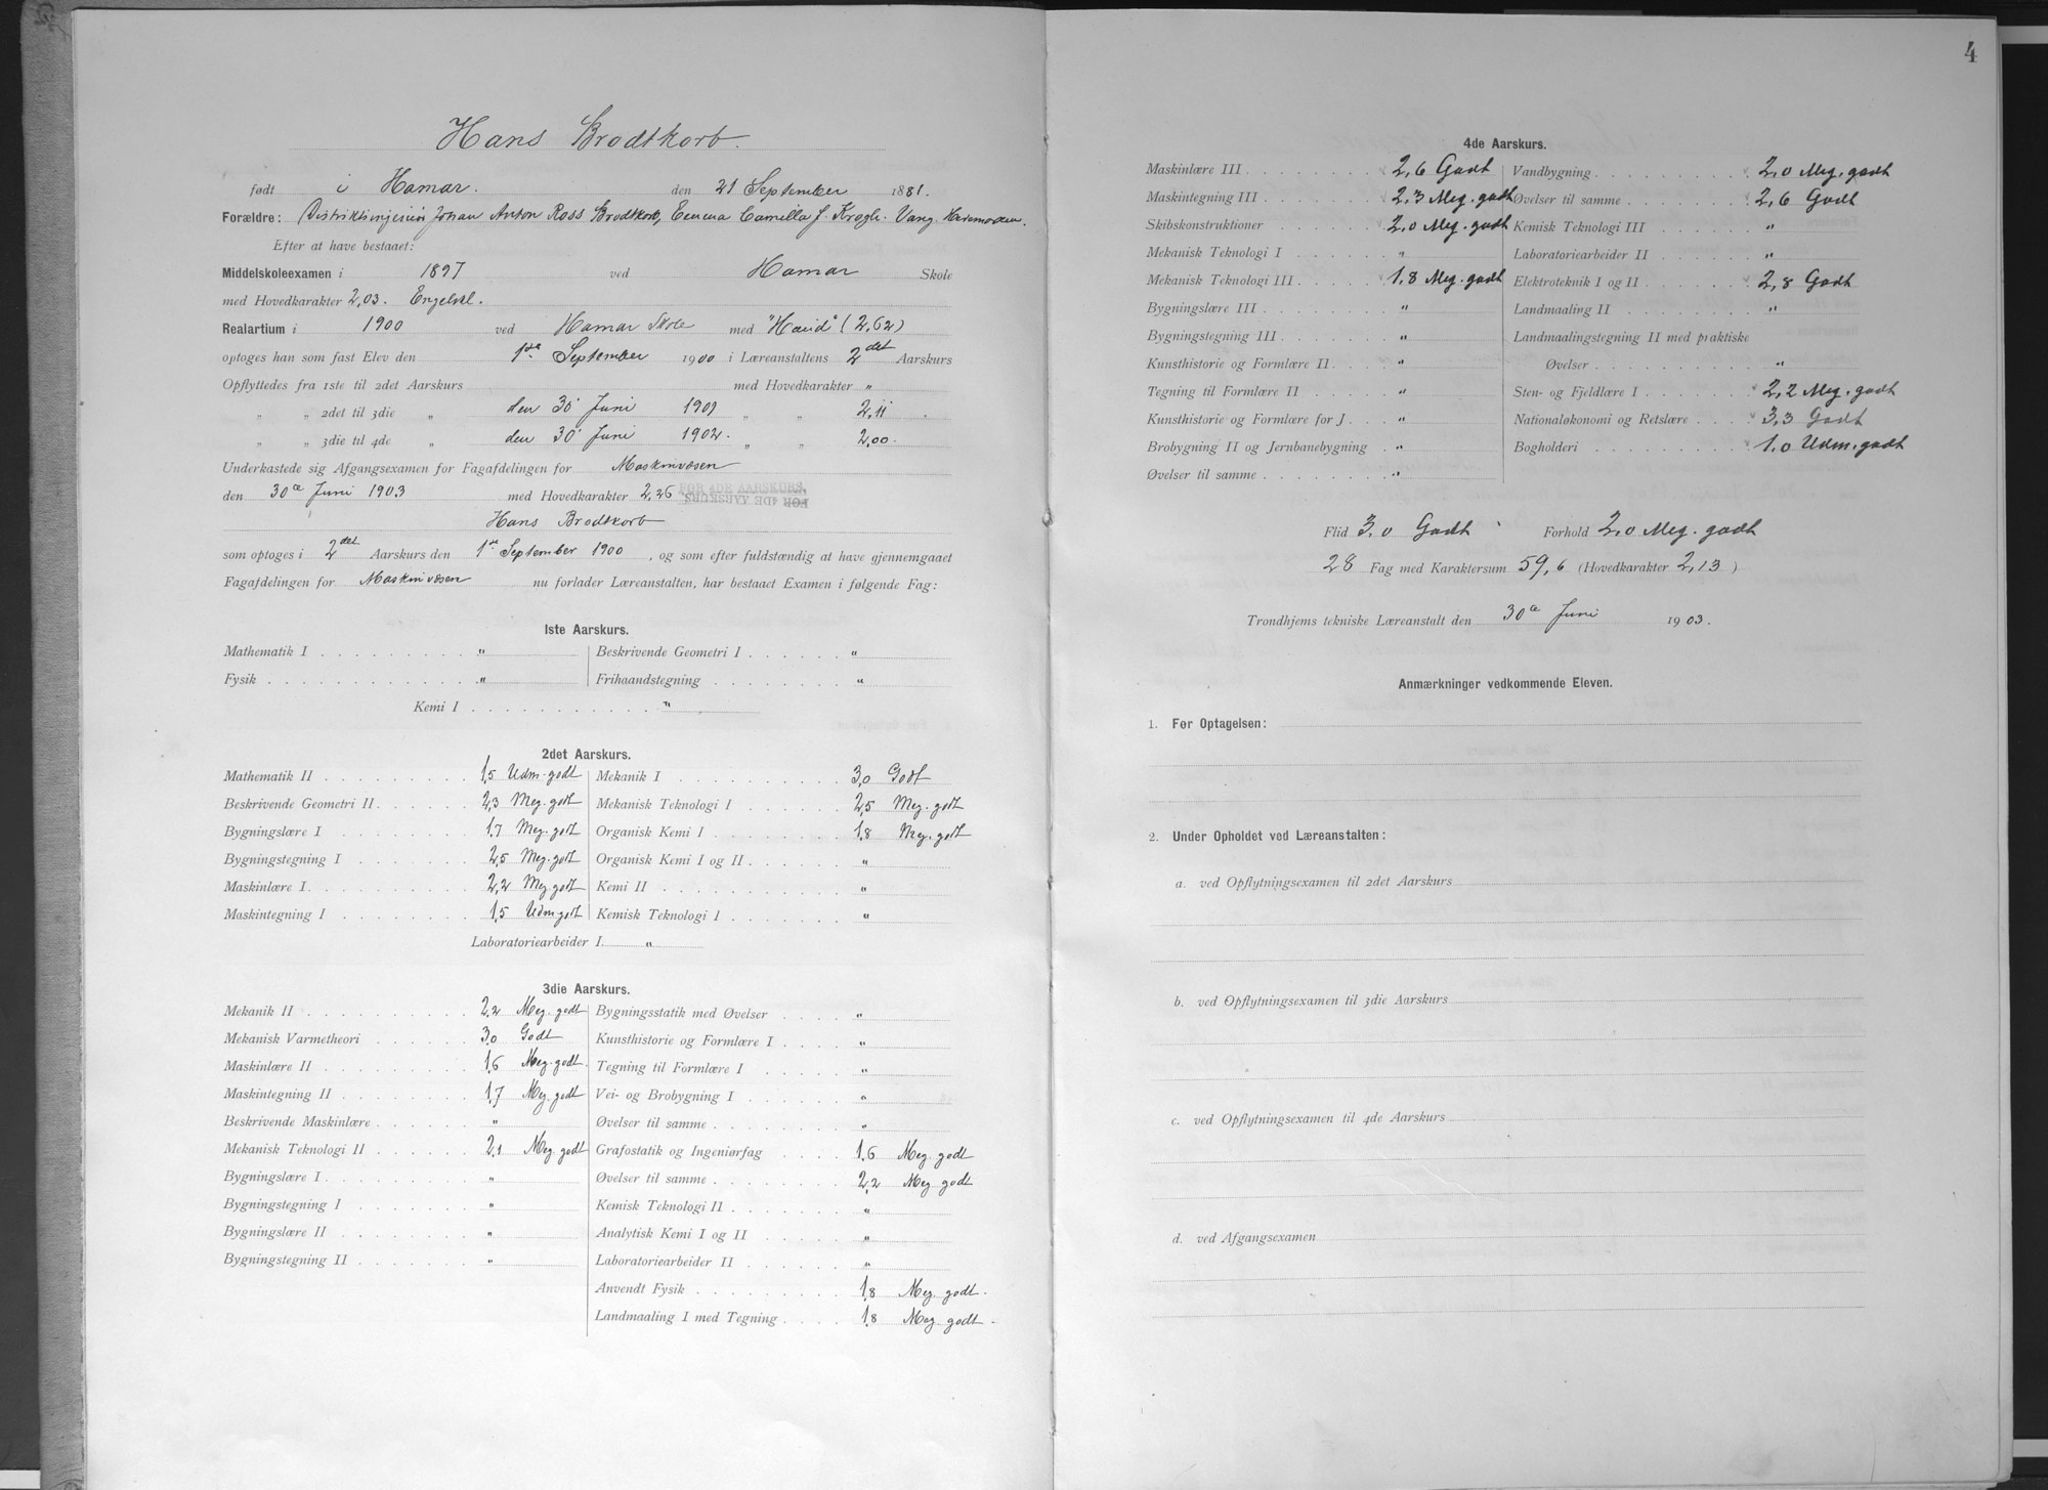 Hans Brodtkorb.
født i Hamar. den 21 September 1881.
Forældre: Distriktsingeniør Johan Anton Ross Brodtkorb, Emma Camilla f. Krogh. Vang. Hedemarken.
Efter at have bestaaet:
Middelskoleexamen i 1897 ved Hamar Skole
med Hovedkarakter 2,03. Engelskl.
Realartium i 1900 ved Hamar Skole med "Haud" (2,62)
optoges han som fast Elev den 1ste September 1900 i Læreanstaltens 2det Aarskurs
Opflyttedes fra 1ste til 2det Aarskurs med Hovedkarakter "
" " 2det til 3die " den 30 Juni 1901 " " 2,11 .
" " 3die til 4de " den 30 Juni 1902. " " 2,00.
Underkastede sig Afgangsexamen for Fagafdelingen for Maskinvæsen
den 30te Juni 1903 med Hovedkarakter 2,26 FOR 4DE AARSKURS.
FOR 4DE AARSKURS
Hans Brodtkorb
som optoges i 2det Aarskurs den 1ste September 1900, og som efter fuldstændig at have gjennemgaaet
Fagafdelingen for Maskinvæsen nu forlader Læreanstalten, har bestaaet Examen i følgende Fag:
1ste Aarskurs.
Mathematik I " Beskrivende Geometri I "
Fysik " Frihaandstegning "
Kemi I "
2det Aarskurs.
Mathematik II 1,5 Udm. godt Mekanik I 3,0 Godt
Beskrivende Geometri II 2,3 Meg. godt Mekanisk Teknologi I 2,5 Meg. godt
Bygningslære I 1,7 Meg. godt Organisk Kemi I 1,8 Meg. godt
Bygningstegning I 2,5 Meg. godt Organisk Kemi I og II "
Maskinlære I 2,2 Meg. godt Kemi II "
Maskintegning I 1,5 Udm. godt Kemisk Teknologi I "
Laboratoriearbeider I. "
3die Aarskurs.
Mekanik II 2,2 Meg. godt Bygningsstatik med Øvelser "
Mekanisk Varmetheori 3,0 Godt Kunsthistorie og Formlære I "
Maskinlære II 1,6 Meg. godt. Tegning til Formlære I "
Maskintegning II 1,7 Meg. godt Vei- og Brobygning I "
Beskrivende Maskinlære " Øvelser til samme "
Mekanisk Teknologi II 2,1 Meg. godt Grafostatik og Ingeniørfag 1,6 Meg. godt
Bygningslære I " Øvelser til samme 2,2 Meg. godt
Bygningstegning I " Kemisk Teknologi II "
Bygningslære II " Analytisk Kemi I og II "
Bygningstegning II " Laboratoriearbeider II "
Anvendt Fysik 1,8 Meg. godt.
Landmaaling I med Tegning 1,8 Meg. godt.
4
4de Aarskurs.
Maskinlære III 2,6 Godt Vandbygning 2,0 Meg. godt
Maskintegning III 2,3 Meg. godt Øvelser til samme 2,6 Godt
Skibskonstruktioner 2,0 Meg. godt Kemisk Teknologi III "
Mekanisk Teknologi I " Laboratoriearbeider II "
Mekanisk Teknologi III 1,8 Meg. godt Elektroteknik I og II 2,8 Godt
Bygningslære III " Landmaaling II "
Bygningstegning III " Landmaalingstegning II med praktiske
Kunsthistorie og Formlære II " Øvelser "
Tegning til Formlære II " Sten- og Fjeldlære I 2,2 Meg. godt
Kunsthistorie og Formlære for J " Nationaløkonomi og Retslære 3,3 Godt
Brobygning II og Jernbanebygning " Bogholderi 1,0 Udm. godt
Øvelser til samme "
Flid 3,0 Godt Forhold 2,0 Meg. godt
28 Fag med Karaktersum 59,6 (Hovedkarakter 2,13)
Trondhjems tekniske Læreanstalt den 30te Juni 1903.
Anmærkninger vedkommende Eleven.
1. Før Optagelsen:
2. Under Opholdet ved Læreanstalten:
a. ved Opflytningsexamen til 2det Aarskurs
b. ved Opflytningsexamen til 3die Aarskurs
c. ved Opflytningsexamen til 4de Aarskurs
d. ved Afgangsexamen